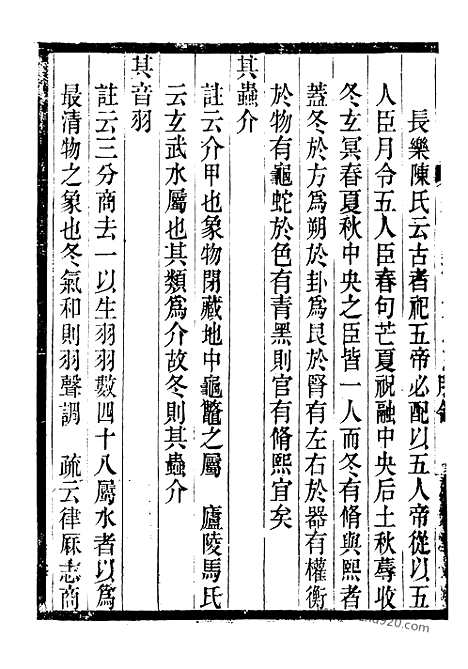 長樂陳氏云古者祀五帝必配以五人帝從以五
人臣月令五人臣春句芒夏祝融中央后土秋蓐收
冬玄冥春夏秋中央之臣皆一人而冬有脩與熙者
蓋冬於方為朔於卦為艮於腎有左右於器有權衡
於物有龜蛇於色有青黑則官有脩熙宜矣
其蟲介
註云介甲也象物閉藏地中龜鼈之屬　廬陵馬氏
云玄武水屬也其類為介故冬則其蟲介
其音羽
註云三分商去一以生羽羽數四十八屬水者以為
最清物之象也冬氣和則羽聲調　疏云律厤志商